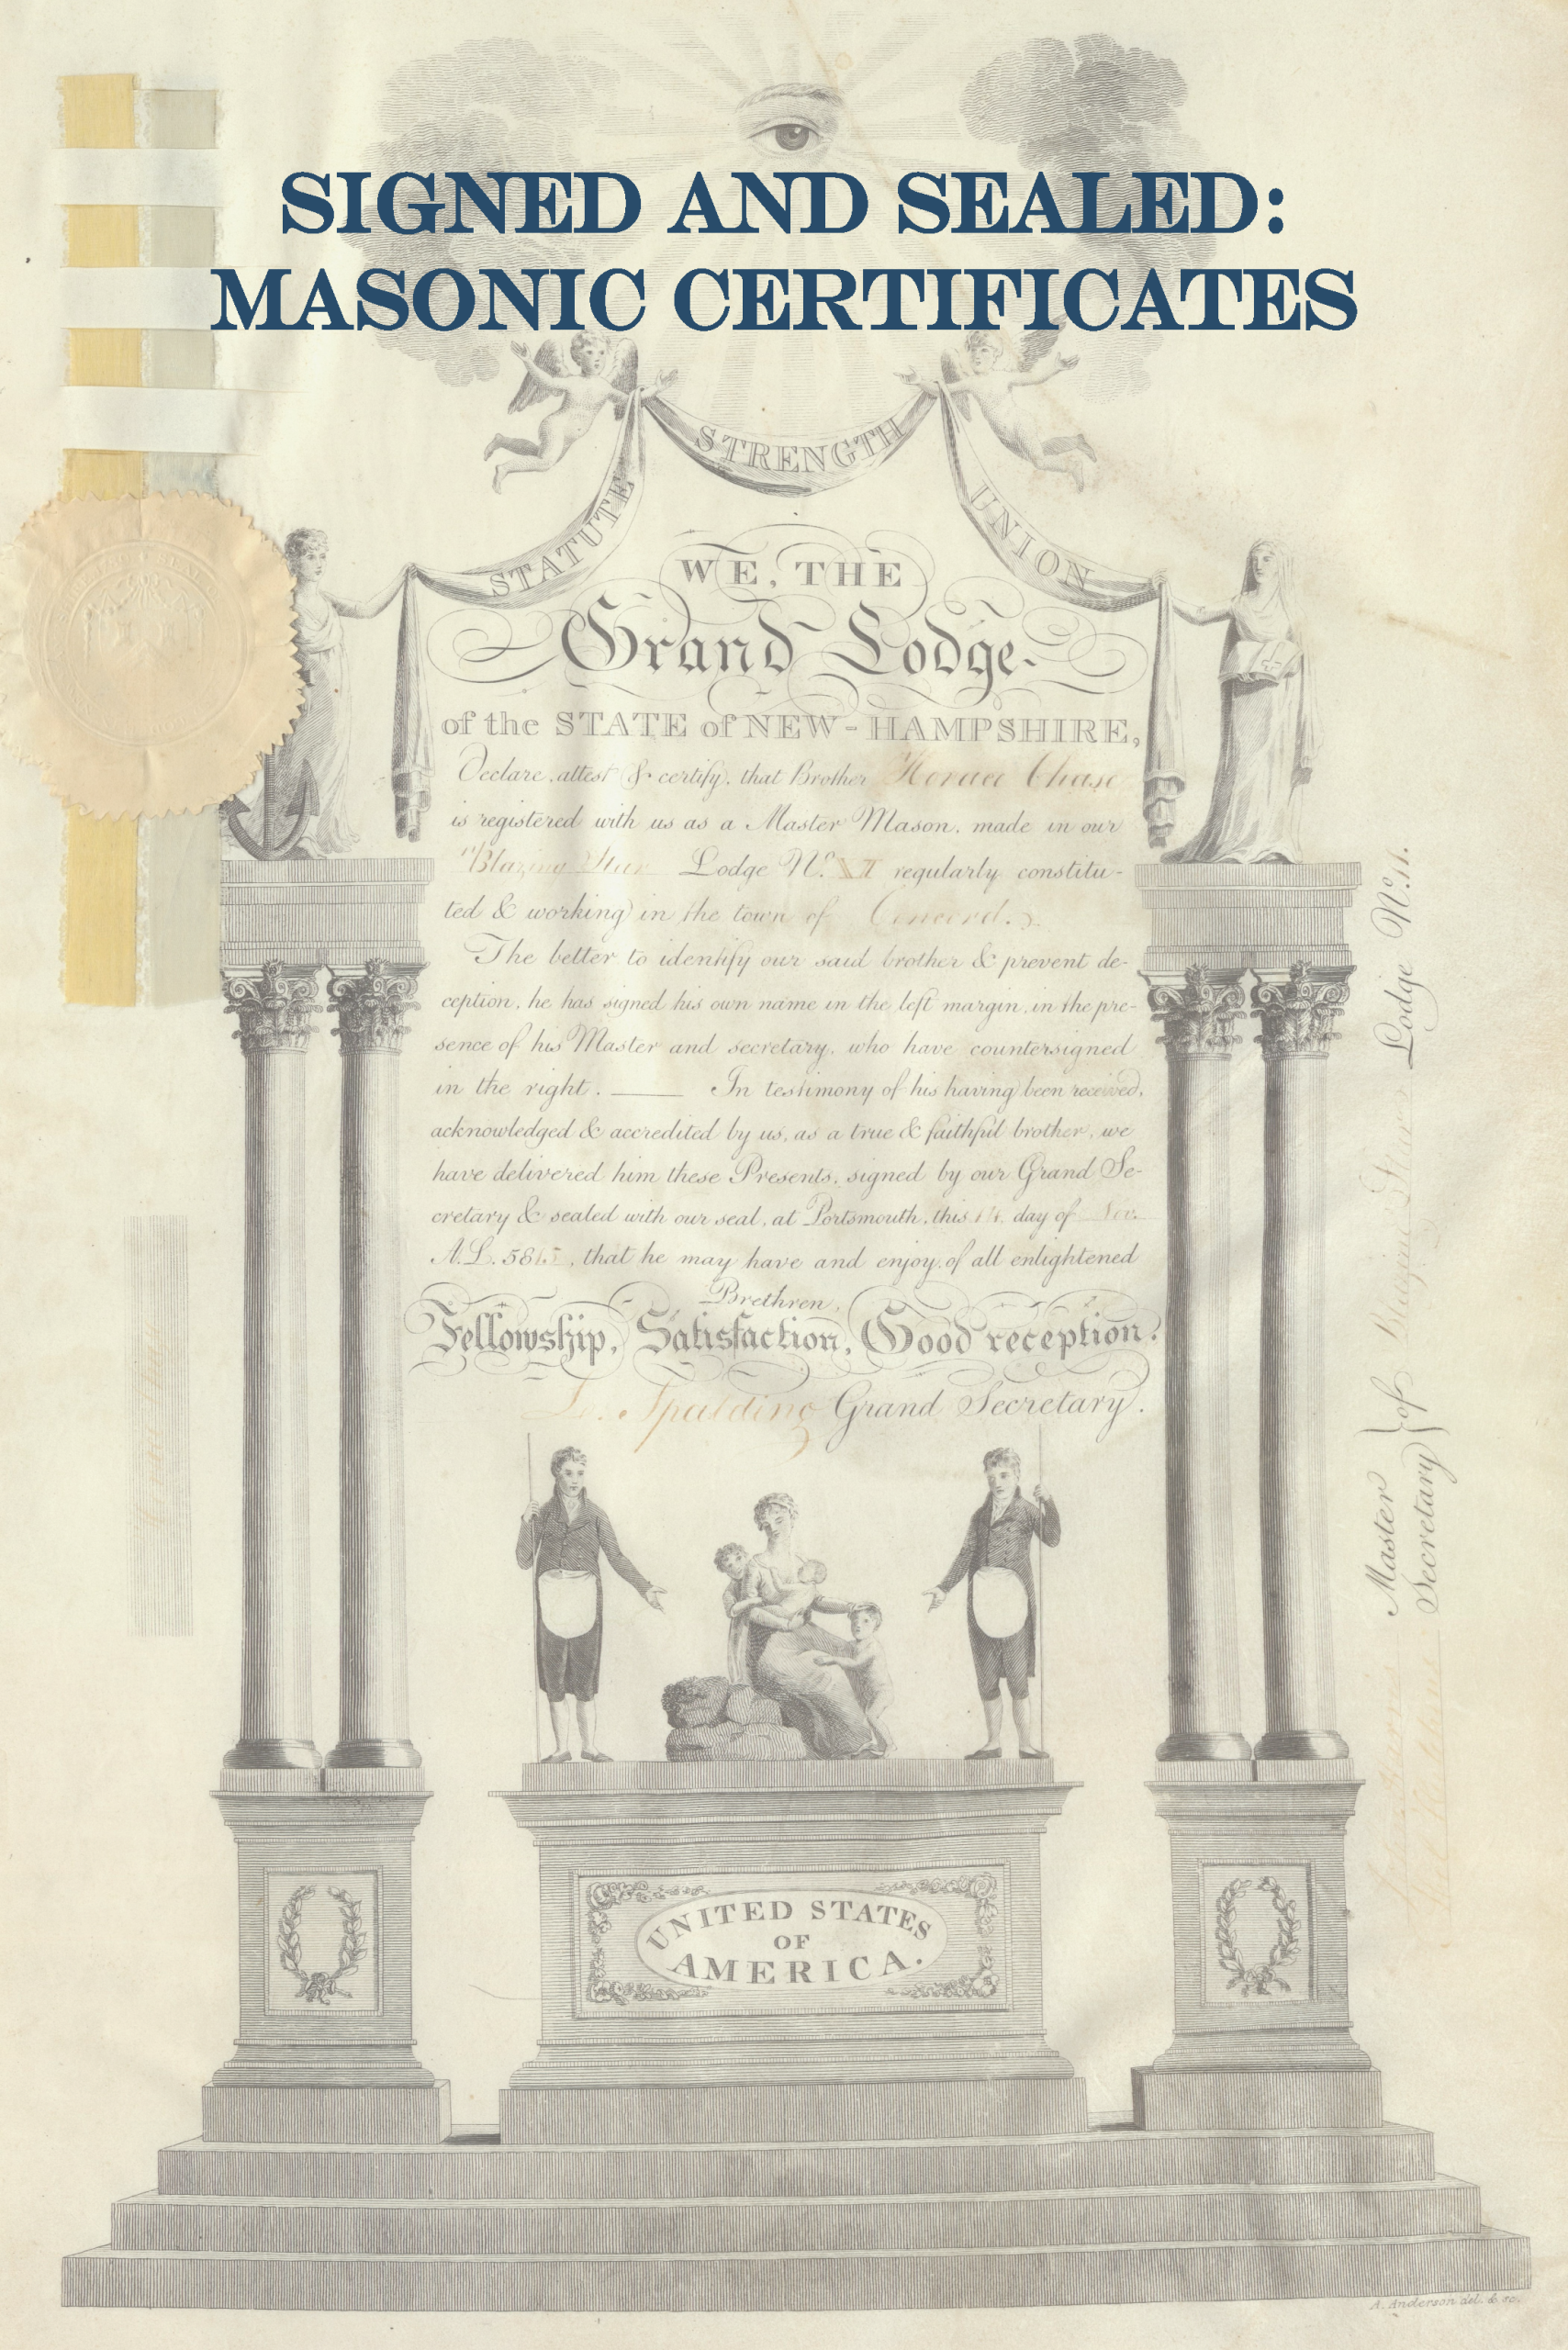 SIGNED AND SEALED:
MASONIC CERTIFICATES
STATUTE
STRENGTH
UNION
WE, THE
Grand Lodge
of the STATE of NEW-HAMPSHIRE,
Declare, attest & certify, that Brother Horace Chase
is registered with us as a Master Mason, made in our
"Blazing Star Lodge No. XI regularly constitu-
ted & working in the town of Concord.
The better to identify our said brother & prevent de-
ception, he has signed his own name in the left margin, in the pre-
sence of his Master and secretary, who have countersigned
in the right. In testimony of his having been received,
acknowledged & accredited by us, as a true & faithful brother, we
have delivered him these Presents, signed by our Grand Se-
cretary & sealed with our seal, at Portsmouth, this day of Nov.
A.L. 5815, that he may have and enjoy, of all enlightened
Brethren,
Fellowship, Satisfaction, Good reception.
Spalding Grand Secretary.
Master
Secretary } of Blazing Star Lodge No. 11.
UNITED STATES
OF
AMERICA.
A. Anderson del. & sc.